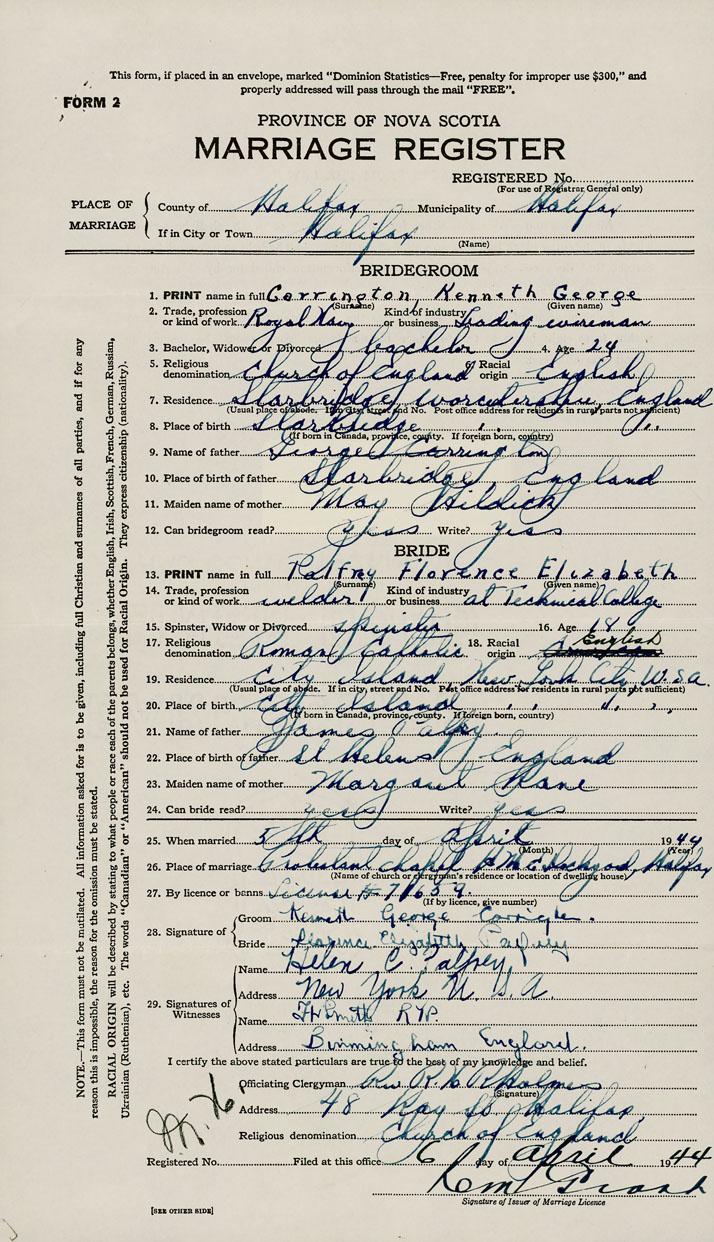 This form, if placed in an envelope, marked "Dominion Statistics—Free, penalty for improper use $300," and
properly addressed will pass through the mail "FREE".
FORM 2
PROVINCE OF NOVA SCOTIA
MARRIAGE REGISTER
REGISTERED No.
(For use of Registrar General only)
PLACE OF MARRIAGE
County of Halifax Municipality of Halifax
If in City or Town Halifax
(Name)
BRIDEGROOM
1. PRINT name in full Carrington, Kenneth George
(Surname) (Given name)
2. Trade, profession or kind of work Royal Navy Kind of industry or business Leading wireman
3. Bachelor, Widower or Divorced bachelor 4. Age 24
5. Religious denomination Church of England 6. Racial origin English
7. Residence Starbridge Worcestershire, England
(Usual place of abode. If in city, street and No. Post office address for residents in rural parts not sufficient)
8. Place of birth Starbridge " "
(If born in Canada, province, county. If foreign born, country)
9. Name of father George Carrington
10. Place of birth of father Starbridge England
11. Maiden name of mother May Hildick
12. Can bridegroom read? yess Write? yess
BRIDE
13. PRINT name in full Palfrey Florence Elizabeth
(Surname) (Given name)
14. Trade, profession or kind of work welder Kind of industry or business at Technical College
15. Spinster, Widow or Divorced spinster 16. Age 18
17. Religious denomination Roman Catholic 18. Racial origin English
19. Residence City Island, New York City U.S.A.
(Usual place of abode. If in city, street and No. Post office address for residents in rural parts not sufficient)
20. Place of birth City Island " " "
(If born in Canada, province, county. If foreign born, country)
21. Name of father James Palfrey
22. Place of birth of father St Helens England
23. Maiden name of mother Margaret Kane
24. Can bride read? yess Write? yess
25. When married 5th day of April 1944
(Month) (Year)
26. Place of marriage Protestant Chapel Dockyard, Halifax
(Name of church or clergyman's residence or location of dwelling house)
27. By licence or banns License # 71659
(If by licence, give number)
28. Signature of
Groom Kenneth George Carrington.
Bride Florence Elizabeth Palfrey
29. Signatures of Witnesses
Name Helen C. Palfrey
Address New York U.S.A.
Name
Address Birmingham England.
I certify the above stated particulars are true to the best of my knowledge and belief.
Officiating Clergyman Rev Holmes
(Signature)
Address 48 Kay St Halifax
Religious denomination Church of England
Registered No. Filed at this office 6 day of April 1944
Signature of Issuer of Marriage Licence
[SEE OTHER SIDE]
NOTE.—This form must not be mutilated. All information asked for is to be given, including full Christian and surnames of all parties, and if for any
reason this is impossible, the reason for the omission must be stated.
RACIAL ORIGIN will be described by stating to what people or race each of the parents belongs, whether English, Irish, Scottish, French, German, Russian,
Ukrainian (Ruthenian), etc. The words "Canadian" or "American" should not be used for Racial Origin. They express citizenship (nationality).